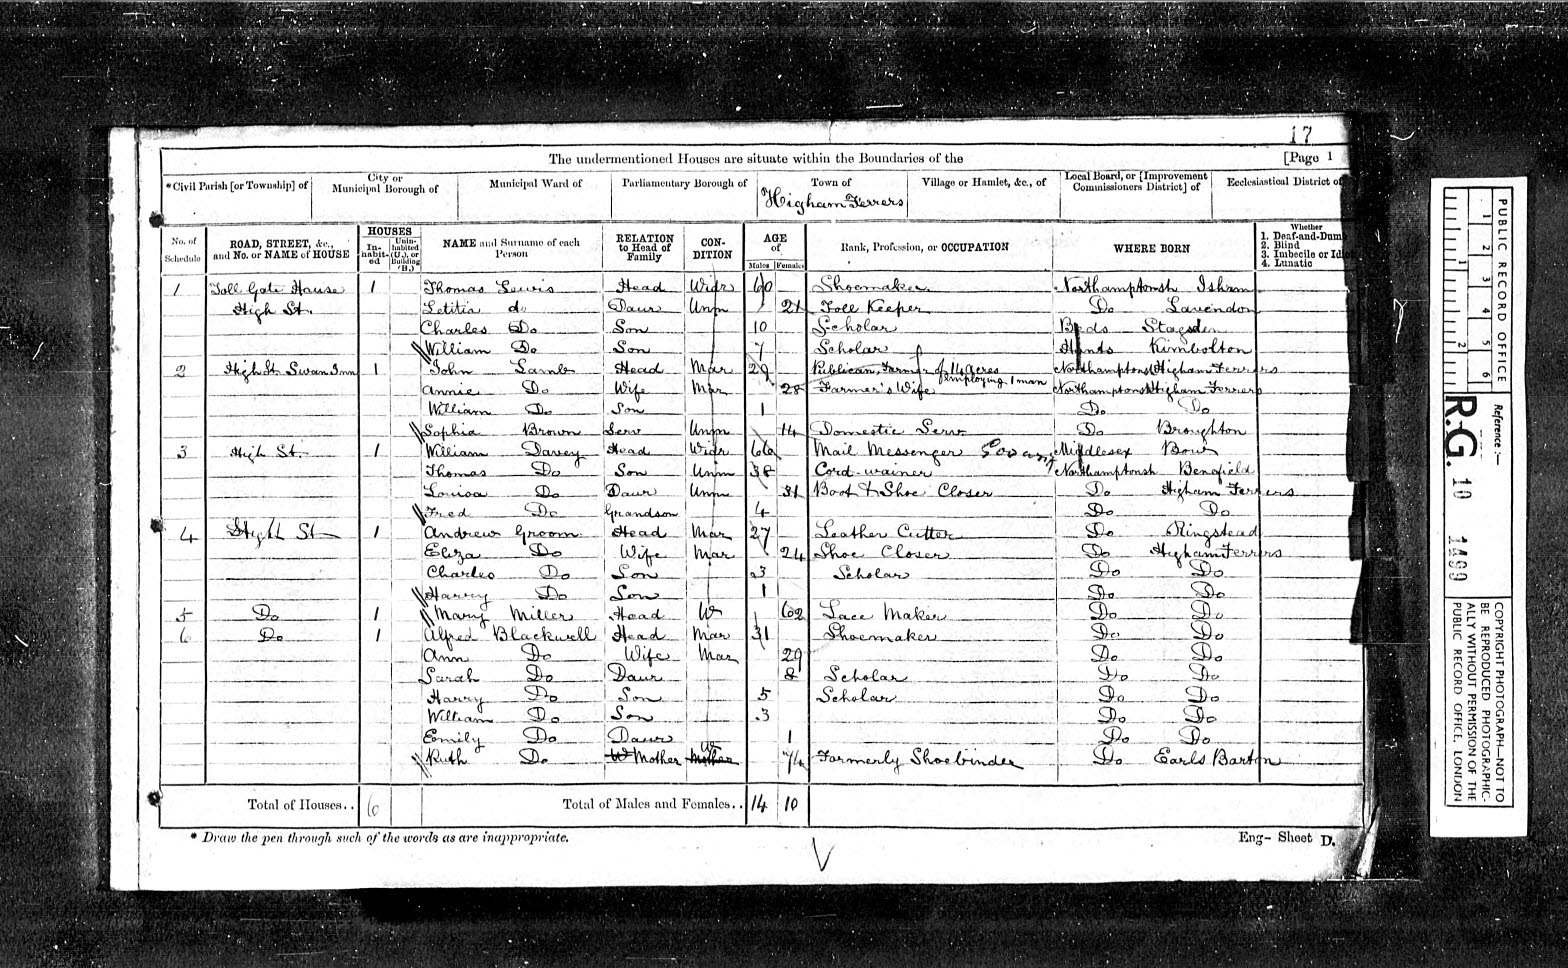 17
The undermentioned Houses are situate within the Boundaries of the [Page 1
*Civil Parish [or Township] of City or Municipal Borough of Municipal Ward of Parliamentary Borough of Town of Village or Hamlet, &c., of Local Board, or [Improvement Commissioners District] of Ecclesiastical District of
Higham Ferrers
No. of Schedule ROAD, STREET, &c., and No. or NAME of HOUSE HOUSES In-habit-ed Unin-habited (U.), or Building (B.) NAME and Surname of each Person RELATION to Head of Family CON-DITION AGE of Males Females Rank, Profession, or OCCUPATION WHERE BORN Whether 1. Deaf-and-Dum 2. Blind 3. Imbecile or Idio 4. Lunatic
1 Toll Gate House 1 Thomas Lewis Head Widr 60 Shoemaker Northamptonsh Isham
High St. Letitia do Daur Unm 21 Toll Keeper Do Lavendon
Charles Do Son 10 Scholar Beds Stagsden
William Do Son 7 Scholar Hunts Kimbolton
2 High St. Swan Inn 1 John Lamb Head Mar 29 Publican, Farmer of 14 acres employing 1 man Northamptonsh Higham Ferrers
Annie Do Wife Mar 28 Farmer's Wife Northamptonsh Higham Ferrers
William Do Son 1 Do Do
Sophia Brown Serv Unm 14 Domestic Serv Do Broughton
3 High St. 1 William Davey Head Widr 66 Mail Messenger Middlesex Bow
Thomas Do Son Unm 38 Cord-wainer Northamptonsh Benefield
Louisa Do Daur Unm 31 Boot & Shoe Closer Do Higham Ferrers
Fred Do Grandson 4 Do Do
4 High St 1 Andrew Groom Head Mar 27 Leather Cutter Do Ringstead
Eliza Do Wife Mar 24 Shoe Closer Do Higham Ferrers
Charles Do Son 3 Scholar Do Do
Harry Do Son 1 Do Do
5 Do 1 Mary Miller Head W 62 Lace Maker Do Do
6 Do 1 Alfred Blackwell Head Mar 31 Shoemaker Do Do
Ann Do Wife Mar 29 Do Do
Sarah Do Daur 8 Scholar Do Do
Harry Do Son 5 Scholar Do Do
William Do Son 3 Do Do
Emily Do Daur 1 Do Do
Ruth Do W Mother W 74 Formerly Shoebinder Do Earls Barton
Total of Houses.. 6 Total of Males and Females.. 14 10
* Draw the pen through such of the words as are inappropriate.
Eng- Sheet D.
PUBLIC RECORD OFFICE
1 2 3 4 5 6
1 2
Reference:-
R.G. 10 1499
COPYRIGHT PHOTOGRAPH-NOT TO
BE REPRODUCED PHOTOGRAPHIC-
ALLY WITHOUT PERMISSION OF THE
PUBLIC RECORD OFFICE, LONDON